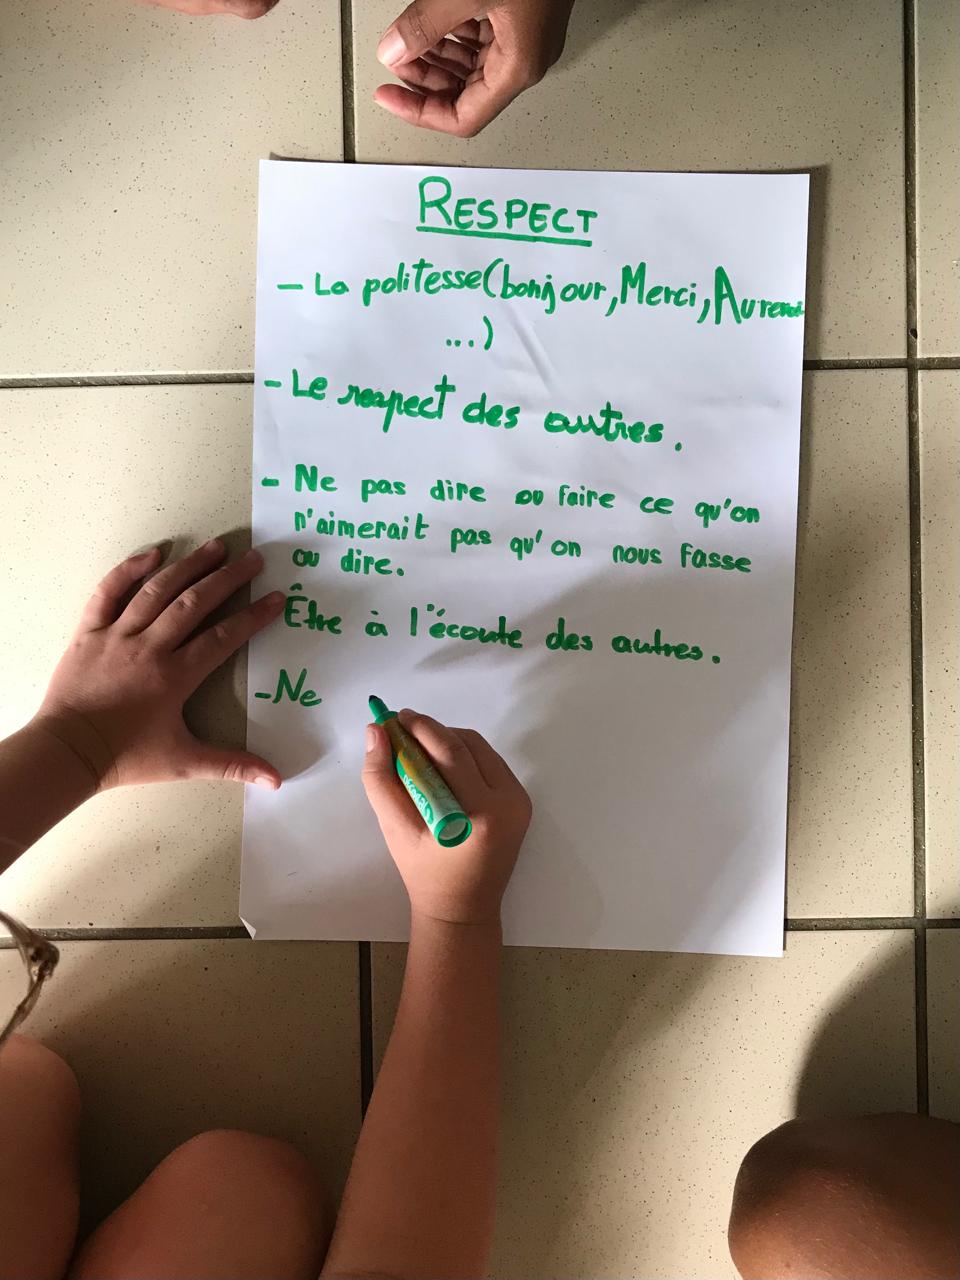 RESPECT
- La politesse (bonjour, Merci, Aurevoir
...)
- Le respect des autres.
- Ne pas dire ou faire ce qu'on
n'aimerait pas qu'on nous fasse
ou dire.
Être à l'écoute des autres.
- Ne